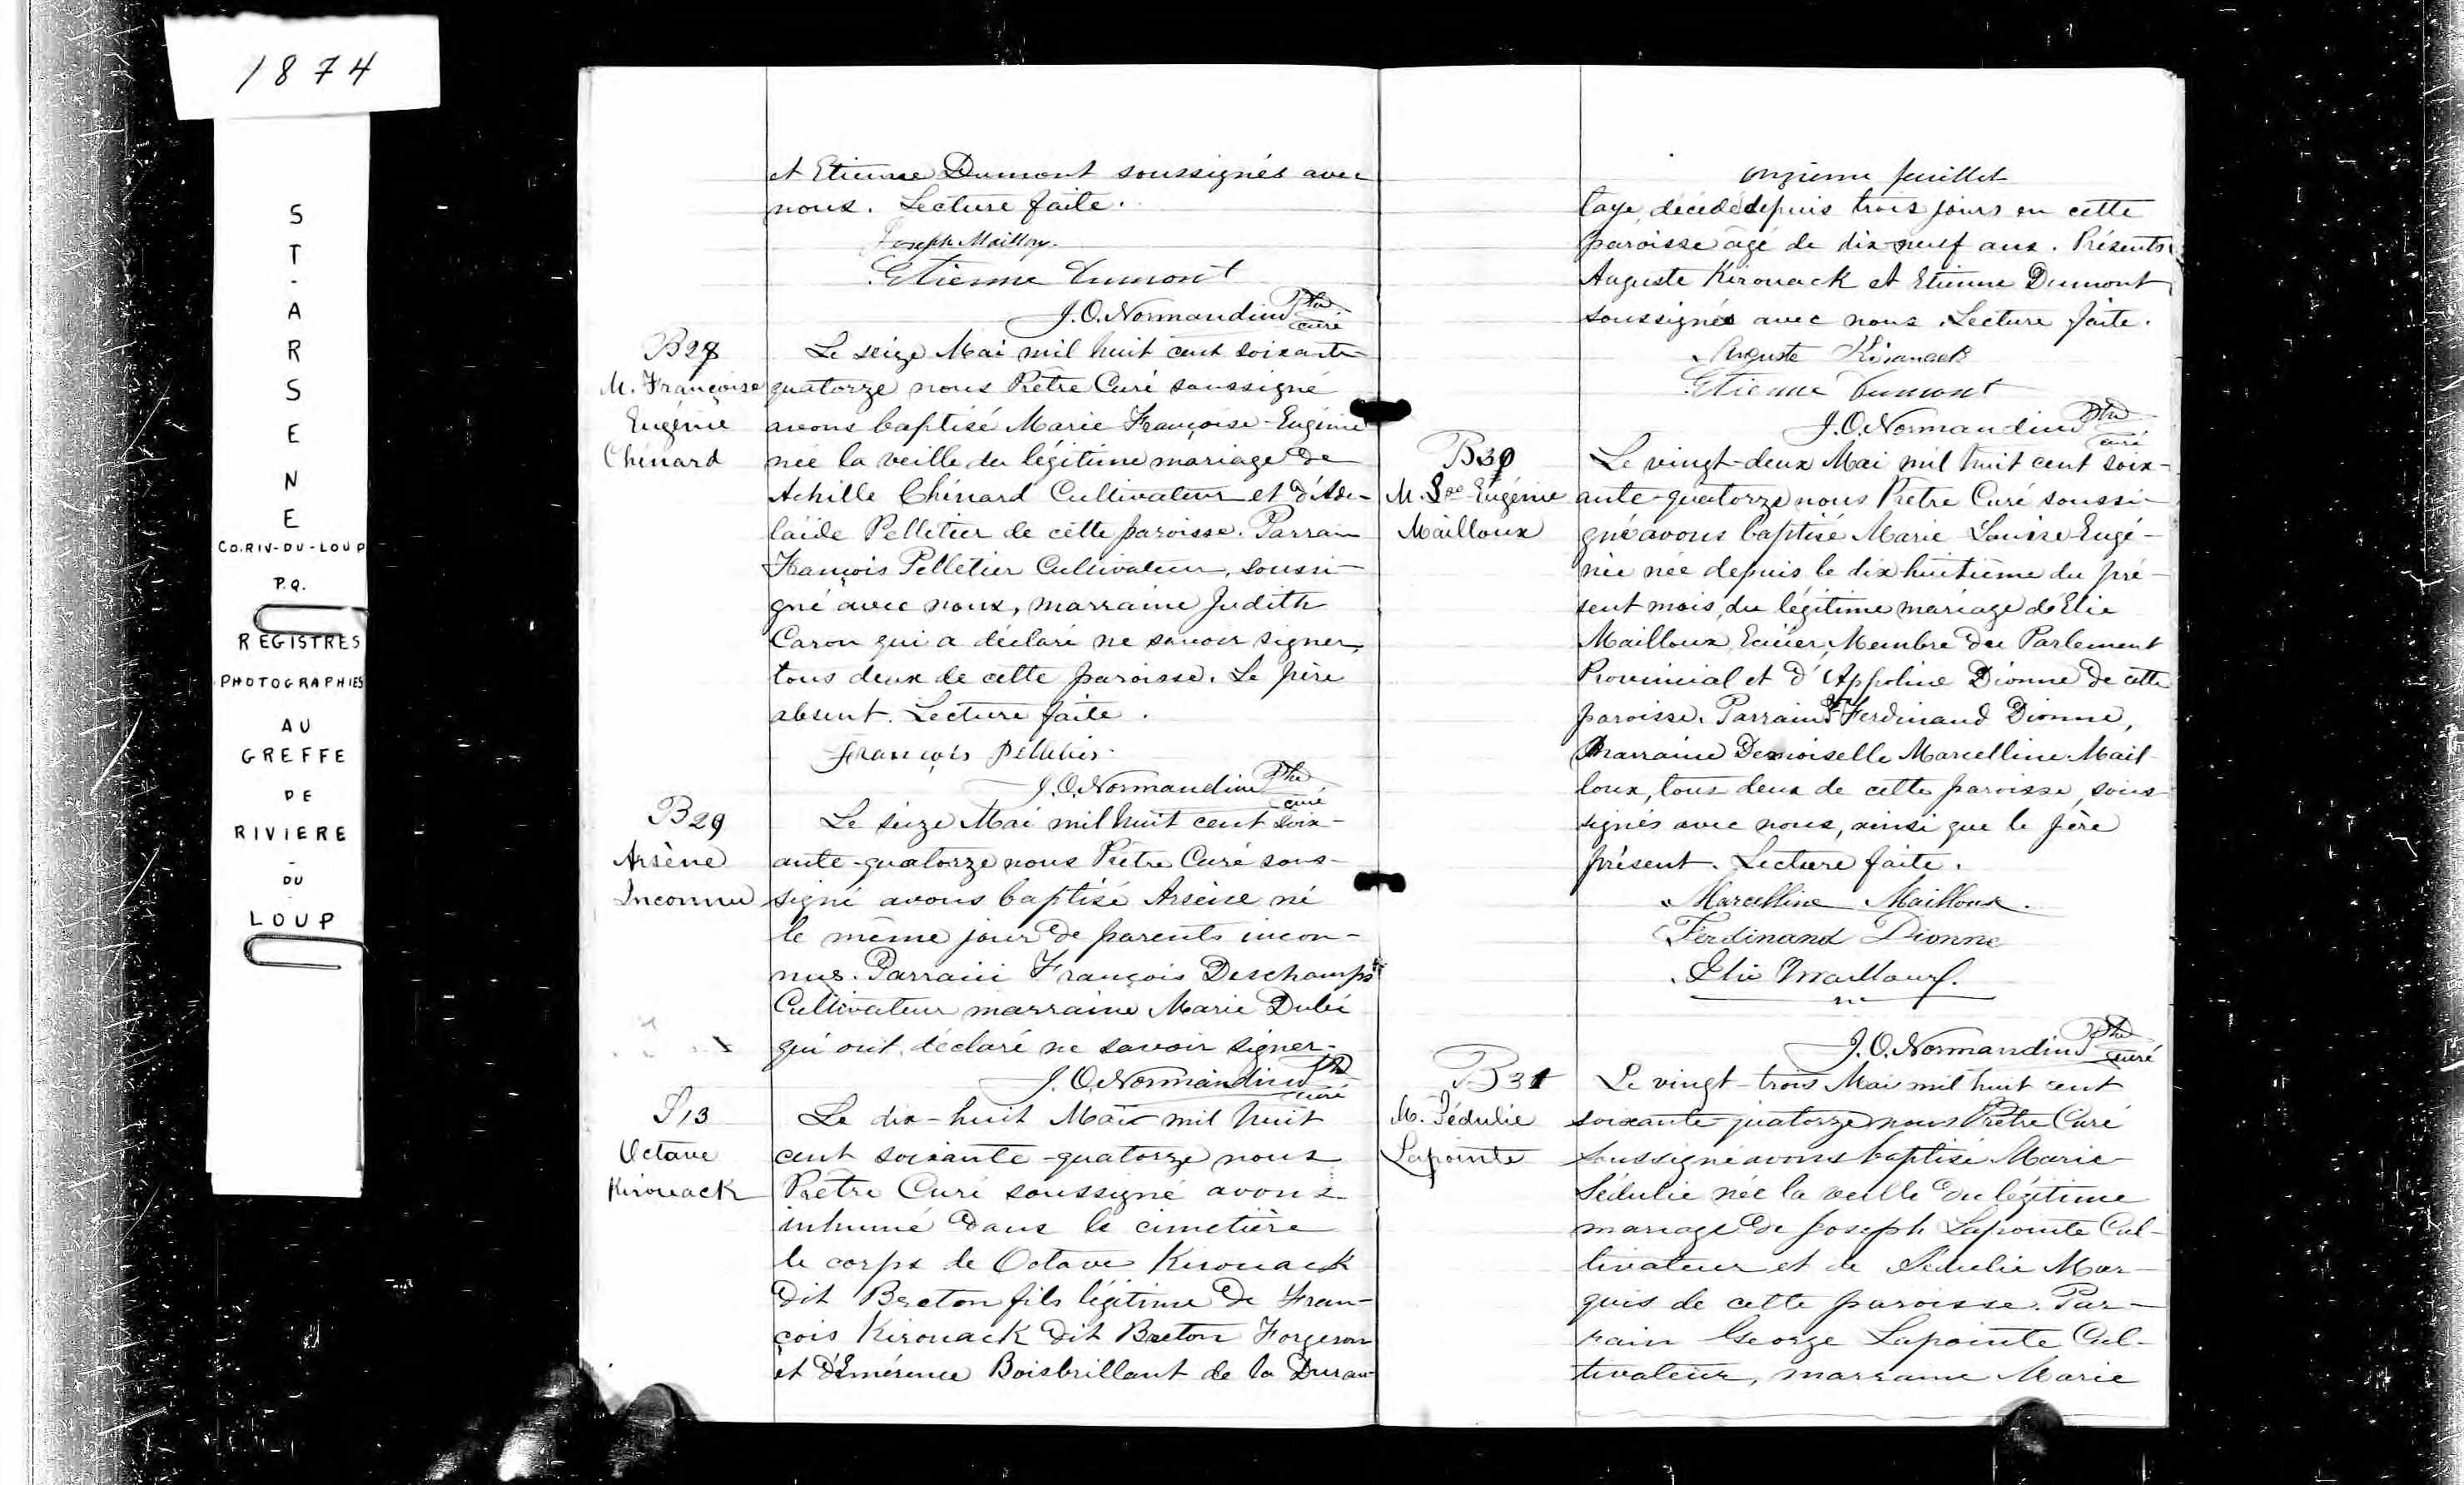 1874
ST-ARSENE
CO.RIV-DU-LOUP
P.Q.
REGISTRES
PHOTOGRAPHIES
AU
GREFFE
DE
RIVIERE
-
DU
-
LOUP
et Etienne Dumont soussignés avec
nous. Lecture faite.
Joseph Mailloux
Etienne Dumont
J.O. Normandin Ptre
curé
B28
M. Françoise
Eugénie
Chénard
Le seize Mai mil huit cent soixante
quatorze nous Prêtre Curé soussigné
avons baptisé Marie Françoise-Eugénie
née la veille du légitime mariage de
Achille Chénard Cultivateur et d'Ade-
laïde Pelletier de cette paroisse. Parrain
François Pelletier Cultivateur, soussi-
gné avec nous, marraine Judith
Caron qui a déclaré ne savoir signer,
tous deux de cette paroisse. Le père
absent. Lecture faite.
François Pelletier
J.O. Normandin Ptre
curé
B29
Arsène
Inconnu
Le seize Mai mil huit cent soix-
ante-quatorze nous Prêtre Curé sous-
signé avons baptisé Arsène né
le même jour de parents incon-
nus. Parrain François Deschamps
Cultivateur marraine Marie Dubé
qui ont déclaré ne savoir signer-
J.O. Normandin Ptre
curé
S13
Octave
Kirouack
Le dix-huit Mai mil huit
cent soixante-quatorze nous
Prêtre Curé soussigné avons
inhumé dans le cimetière
le corps de Octave Kirouack
dit Breton fils légitime de Fran-
çois Kirouack dit Breton Forgeron
et d'Emérence Boisbrillant de la Duran-
onzième feuillet
taye, décédé depuis trois jours en cette
paroisse âgé de dix-neuf ans. Présents
Auguste Kirouack et Etienne Dumont
soussignés avec nous. Lecture faite.
Auguste Kirouack
Etienne Dumont
J.O. Normandin Ptre
curé
B30
M. Lse Eugénie
Mailloux
Le vingt-deux Mai mil huit cent soix-
ante-quatorze nous Prêtre Curé soussi-
gné avons baptisé Marie Louise Eugé-
nie née depuis le dix huitième du pré-
sent mois, du légitime mariage de Elie
Mailloux, Ecuier, Membre du Parlement
Provincial et d'Appoline Dionne de cette
paroisse. Parrain Ferdinand Dionne,
Marraine Demoiselle Marcelline Mail-
loux, tous deux de cette paroisse, sous-
signés avec nous, ainsi que le père
présent. Lecture faite.
Marcelline Mailloux.
Ferdinand Dionne
Elie Mailloux.
J.O. Normandin Ptre
curé
B31
M. Sédulie
Lapointe
Le vingt-trois Mai mil huit cent
soixante-quatorze nous Prêtre Curé
soussigné avons baptisé Marie
Sédulie née la veille du légitime
mariage de Joseph Lapointe Cul-
tivateur et de Sédulie Mar-
quis de cette paroisse. Par-
rain George Lapointe Cul-
tivateur, marraine Marie